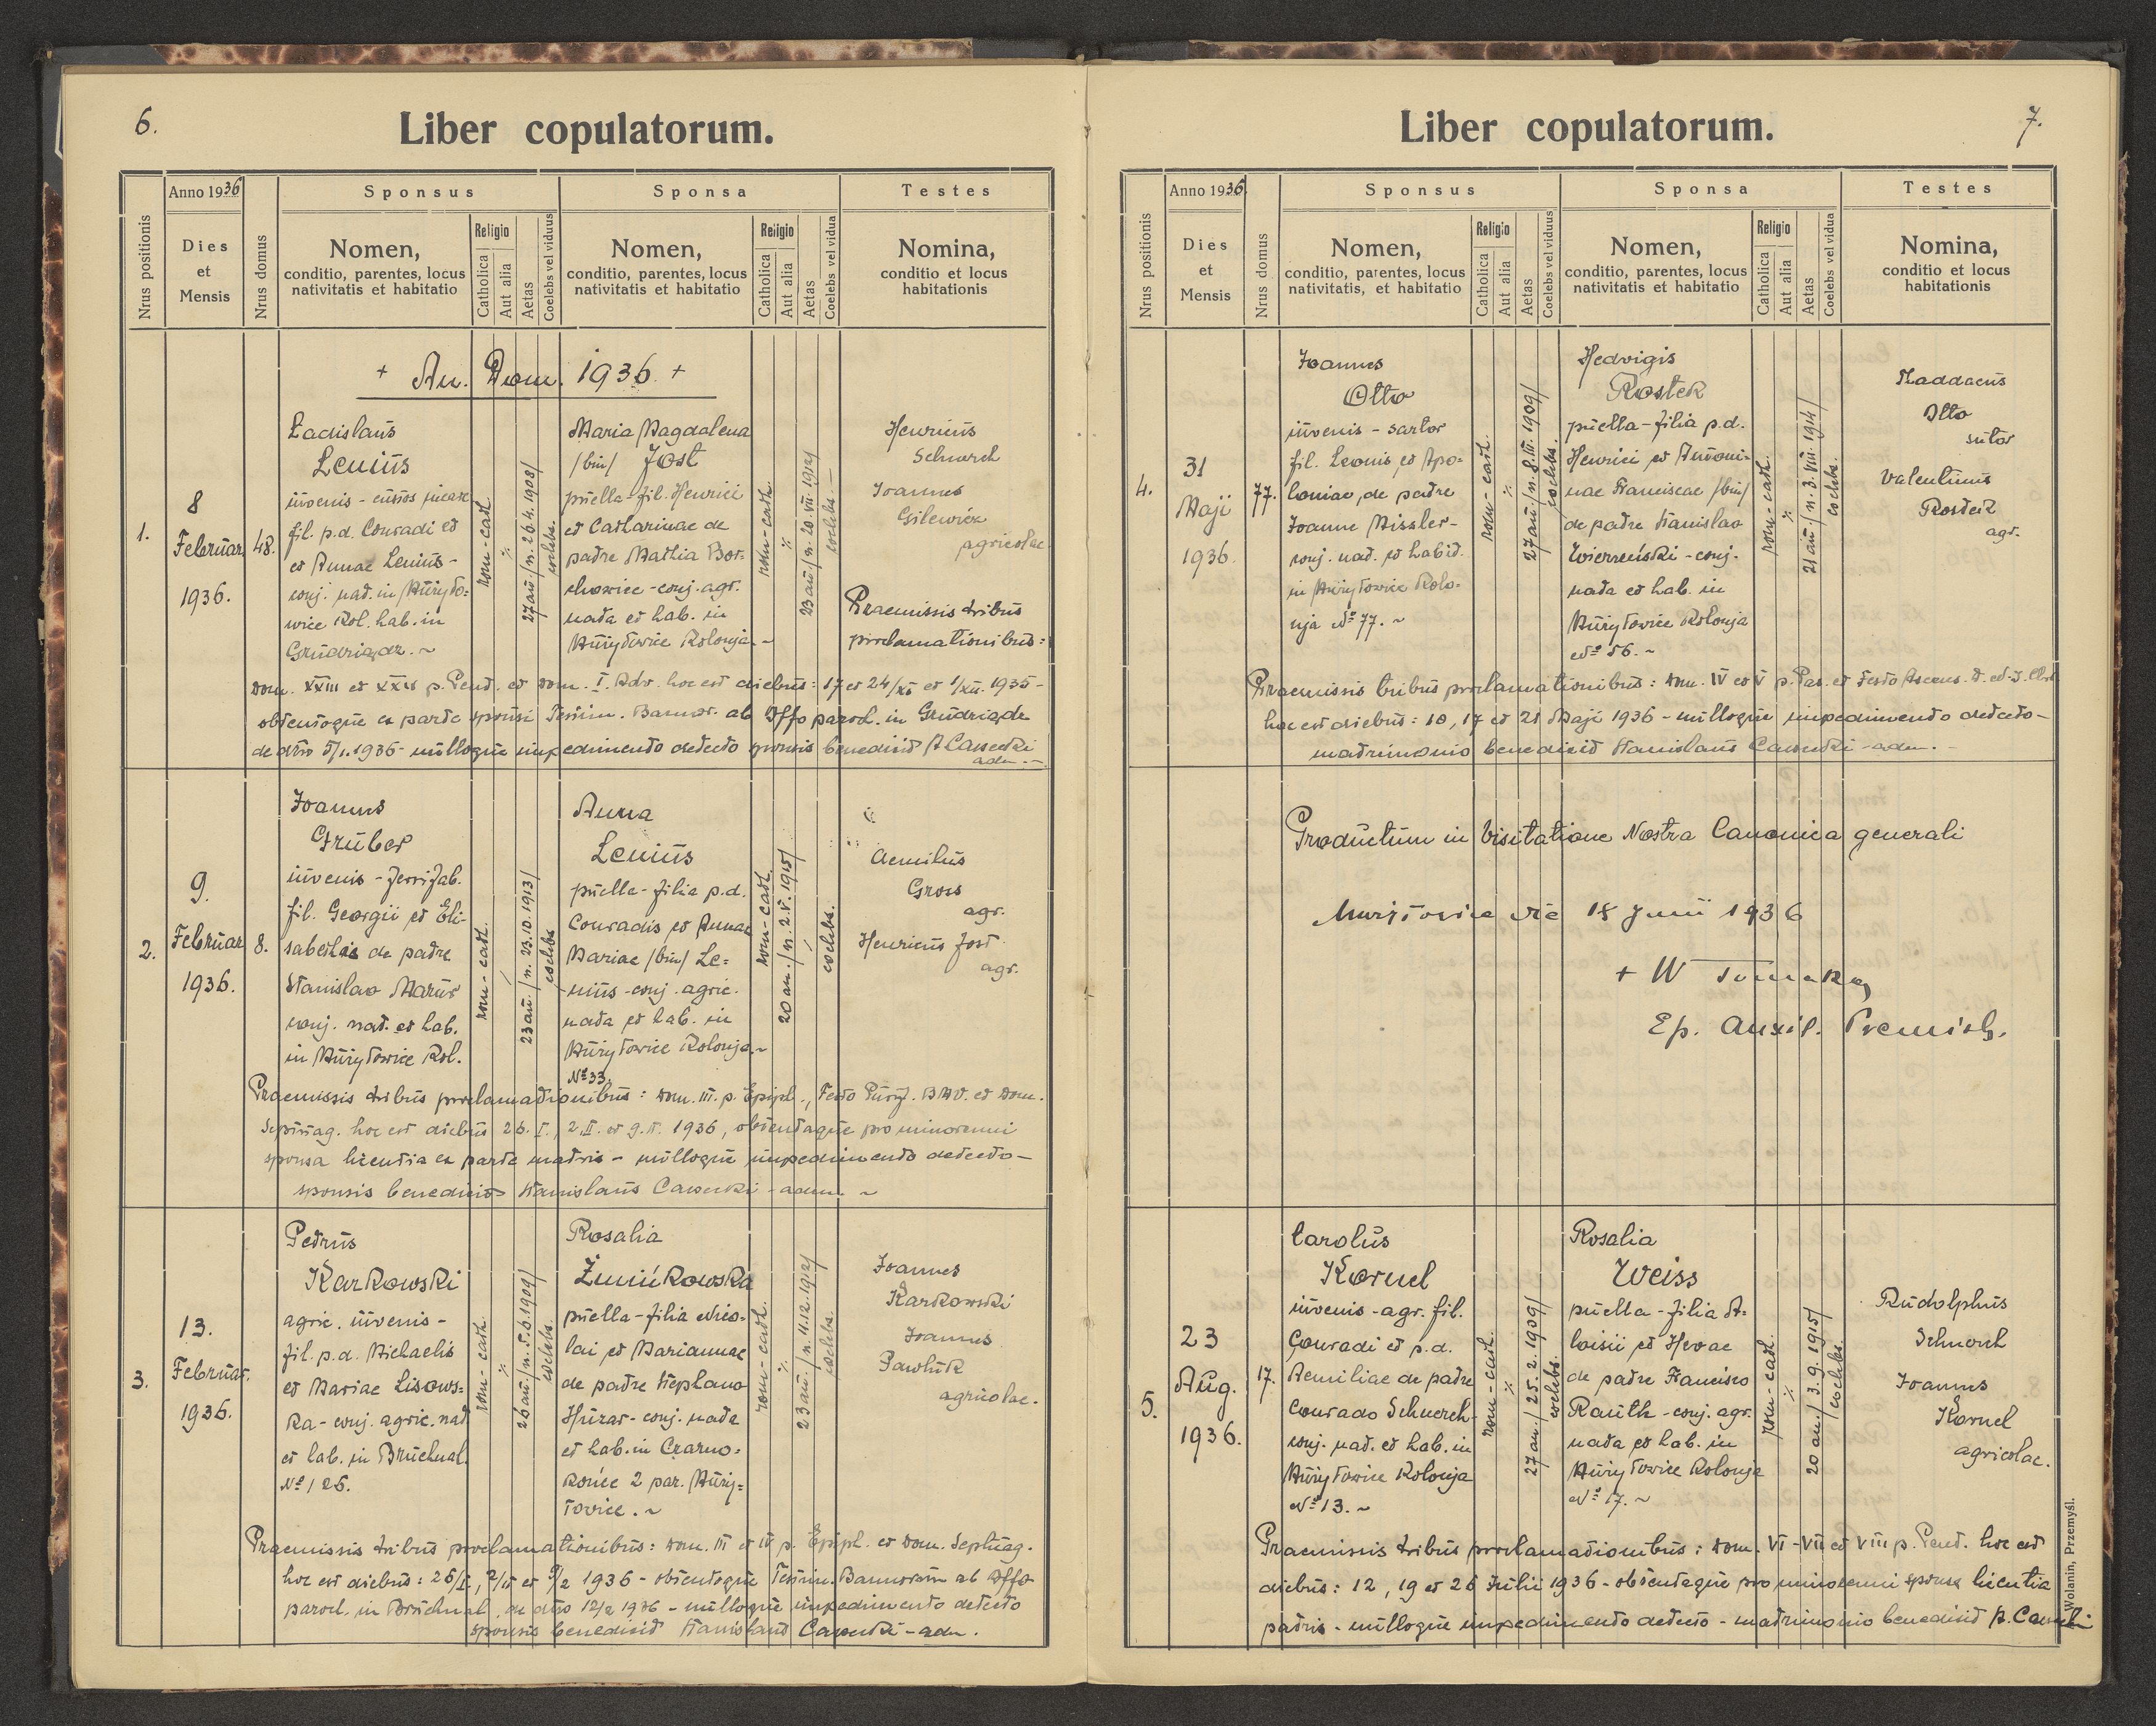 6.
Liber copulatorum.
Nrus positionis
Anno 1936
Dies
et
Mensis
Nrus domus
Sponsus
Nomen,
conditio, parentes, locus
nativitatis et habitatio
Religio
Catholica
Aut alia
Aetas
Coelebs vel viduus
Sponsa
Nomen,
conditio, parentes, locus
nativitatis et habitatio
Religio
Catholica
Aut alia
Aetas
Coelebs vel vidua
Testes
Nomina,
conditio et locus
habitationis
+ An. Dom. 1936 +
1.
8
Februar
1936.
48.
Ladislaus
Lenius
iuvenis -
fil. p.d. Conradi et
et Annae Lenius -
conj. nat. in Mużyło=
wice Kol. hab. in
Grudziądz. ~
rom-cath
27 an. / n. 26.4.1908/
coelebs.
Maria Magdalena
/bin/ Jost
puella - fil. Henrici
et Catharinae de
patre Mathia Bor=
chowice - conj. agr.
nata et hab. in
Mużyłowice Kolonja. ~
rom-cath.
23 an / n. 20.VII.1912/
coelebs. -
Henricus
Schnerch
Joannes
Gilewicz
agricolae
Praemissis tribus
proclamationibus:
Dom. XXIII et XXIV p. Pent. et Dom. I. Adv. hoc est diebus: 17 et 24/XI et 1/XII. 1935 -
obtentoque ex parte sponsi Testim. Bannor. ab Offo paroch. in Grudziądz
de dtto 5/I.1936 - nulloque impedimento detecto sponsis benedixit St Cawecki
adm. -
2.
9.
Februar
1936.
8.
Joannes
Gruber
iuvenis -
fil. Georgii et Eli-
sabethae de patre
Stanislao
conj. nat. et hab.
in Mużyłowice Kol.
rom-cath.
23 an. / n. 23.10.1913/
coelebs
Anna
Lenius
puella - filia p.d.
Conradis et Annae
Mariae /bin/ Le=
nius - conj. agric.
nata et hab. in
Mużyłowice Kolonja. ~
No 33.
rom-cath.
20 an. / n. 2.V.1915/
coelebs.
Aemilius
Gross
agr.
Henricus Jost
agr.
Praemissis tribus proclamationibus: Dom. III. p. Epiph., Festo Purif. BMV. et Dom.
Septuag. hoc est diebus 26.I., 2.II. et 9.II. 1936, obtentaque pro minorenni
sponsa licentia ex parte matris - nulloque impedimento detecto -
sponsis benedixit Stanislaus Cawecki - adm ~
3.
13.
Februar.
1936.
Petrus
Karkowski
agric. iuvenis -
fil. p.d. Michaelis
et Mariae Lisows=
ka - conj. agric. nat
et hab. in Bruchnal.
No 126.
rom-cath.
26 an. / n. 5.6.1909/
coelebs.
Rosalia
Żmińkowska
puella - filia Nico=
lai et Mariannae
de patre Stephano
Huzar - conj. nata
et hab. in Czarno=
końce 2 par. Muży=
łowice. ~
rom-cath.
23 an. / n. 11.12.1912/
coelebs.
Joannes
Karkowski
Joannes
Pawluk
agricolae.
Praemissis tribus proclamationibus: Dom. III et IV p. Epiph. et Dom. Septuag.
hoc est diebus: 26/I, 2/II et 9/2 1936 - obtentoque Testim. Bannorum ab Offo
paroch. in Bruchnal, de dtto 12/2 1936 - nulloque impedimento detecto
sponsis benedixit Stanislaus Cawecki - adm.
7.
Liber copulatorum.
Nrus positionis
Anno 1936.
Dies
et
Mensis
Nrus domus
Sponsus
Nomen,
conditio, parentes, locus
nativitatis, et habitatio
Religio
Catholica
Aut alia
Aetas
Coelebs vel viduus
Sponsa
Nomen,
conditio, parentes, locus
nativitatis et habitatio
Religio
Catholica
Aut alia
Aetas
Coelebs vel vidua
Testes
Nomina,
conditio et locus
habitationis
4.
31
Maji
1936.
77.
Joannes
Otto
iuvenis - sartor
fil. Leonis et Apo=
loniae, de patre
Joanne Missler -
conj. nat. et habit.
in Mużyłowice Kolo=
nja No 77. ~
rom-cath.
27 an / n. 8.III.1909/
coelebs.
Hedvigis
Rostek
puella - filia p.d.
Henrici et Antoni=
nae Franciscae /bin/
de patre Stanislao
conj.
nata et hab. in
Mużyłowice Kolonja
No 56. ~
rom-cath.
21 an. / n. 3.VIII.1914/
coelebs.
Thaddaeus
Otto
sutor
Valentinus
Rostek
agr.
Praemissis tribus proclamationibus: Dom. IV et V p. Pas. et Festo Ascens.
hoc est diebus: 10, 17 et 21 Maji 1936 - nulloque impedimento detecto -
matrimonio benedixit Stanislaus Cawecki - adm. -
Productum in Visitatione Nostra Canonica generali
Mużyłowice die 18 Junii 1936
+ W Tomaka
Ep. Auxil. Premisl.
5.
23
Aug.
1936.
17.
Carolus
Kornel
iuvenis - agr. fil.
Conradi et p.d.
Aemiliae de patre
Conrado Schnerch -
conj. nat. et hab. in
Mużyłowice Kolonja
No 13. ~
rom-cath.
27 an. / 25.2.1909/
coelebs.
Rosalia
Weiss
puella - filia A=
loisii et Hevae
de patre Francisco
Rauth - conj. agr.
nata et hab. in
Mużyłowice Kolonja
No 17. ~
rom-cath.
20 an. / 3.9.1915/
coelebs.
Rudolphus
Schnerch
Joannes
Kornel
agricolae.
Praemissis tribus proclamationibus: Dom. VI - VII et VIII p. Pent. hoc est
diebus: 12, 19 et 26 Julii 1936 - obtentaque pro minorenni sponsa licentia
patris - nulloque impedimento detecto - matrimonio benedixit St. Cawecki
Wolanin, Przemyśl.